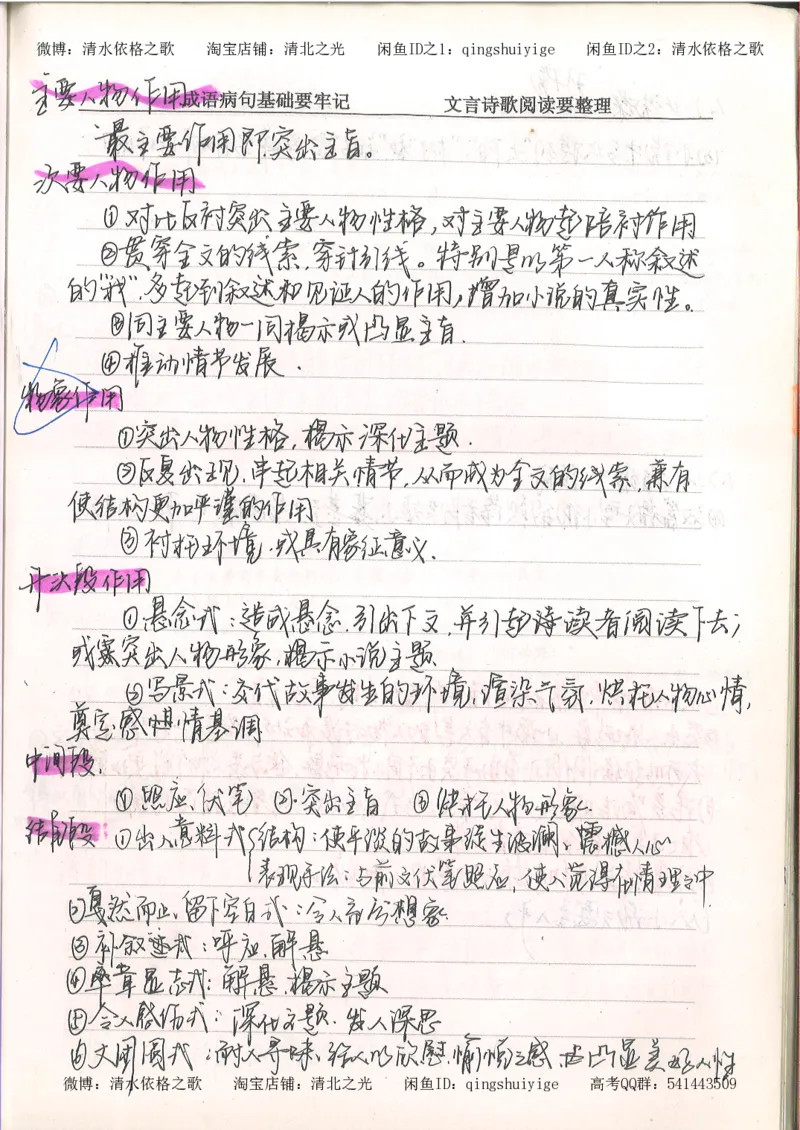 微博：清水依格之歌 淘宝店铺：清北之光 闲鱼ID之1：qingshuiyige 闲鱼ID之2：清水依格之歌
主要人物作用 成语病句基础要牢记 文言诗歌阅读要整理
最主要作用即突出主旨。
次要人物作用
①对比反衬突出主要人物性格，对主要人物起陪衬作用
②贯穿全文的线索，穿针引线。特别是以第一人称叙述
的"我"，多起到叙述和见证人的作用，增加小说的真实性。
③同主要人物一同揭示或凸显主旨.
④推动情节发展.
物象作用
①突出人物性格，揭示深化主题.
②反复出现，串起相关情节，从而成为全文的线索，兼有
使结构更加严谨的作用
③衬托环境，或具有象征意义.
开头段作用
①悬念式：造成悬念，引出下文，并引起读者阅读下去；
或突出人物形象，揭示小说主题
②写景式：交代故事发生的环境，渲染气氛，烘托人物心情，
奠定感情基调
中间段：
①照应、伏笔 ②突出主旨 ③烘托人物形象.
结尾段：①出人意料式 结构：使平淡的故事陡生波澜、震撼人心
表现手法：与前文伏笔照应，使人觉得在情理之中
②戛然而止，留下空白式：令人充分想象
③补叙式：呼应，解悬
④卒章显志式：解悬，揭示主题
⑤令人感伤式：深化主题，发人深思
⑥大团圆式：耐人寻味，给人以欣慰，愉悦之感，凸显美好人性
微博：清水依格之歌 淘宝店铺：清北之光 闲鱼ID：qingshuiyige 高考QQ群：541443509